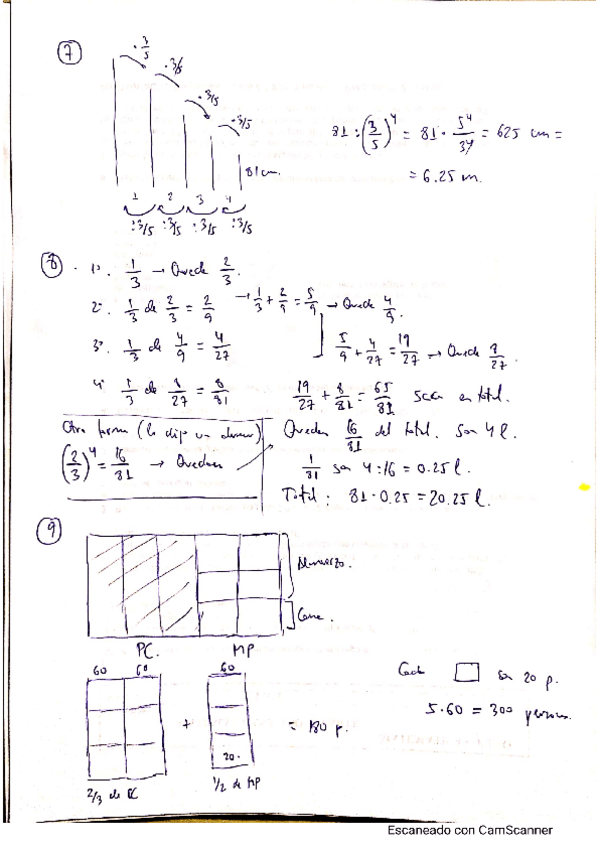 7
· 3/5
· 3/5
· 3/5
· 3/5
81 cm.
1 2 3 4
:3/5 :3/5 :3/5 :3/5
81 : (3/5)^4 = 81 · 5^4/3^4 = 625 cm =
= 6.25 m.
8 · 1º. 1/3 → Queda 2/3.
2º. 1/3 de 2/3 = 2/9 → 1/3 + 2/9 = 5/9 → Queda 4/9.
3º. 1/3 de 4/9 = 4/27 5/9 + 4/27 = 19/27 → Queda 8/27.
4º 1/3 de 8/27 = 8/81 19/27 + 8/81 = 65/81 saca en total.
Otra forma (lo dijo un alumno)
(2/3)^4 = 16/81 → Quedan
Quedan 16/81 del total. Son 4 l.
1/81 son 4:16 = 0.25 l.
Total: 81 · 0.25 = 20.25 l.
9
Almuerzo.
Cena.
PC. MP
60 60 60
+
= 180 p.
20.
2/3 de PC 1/2 de MP
Cada son 20 p.
5·60 = 300 personas.
Escaneado con CamScanner